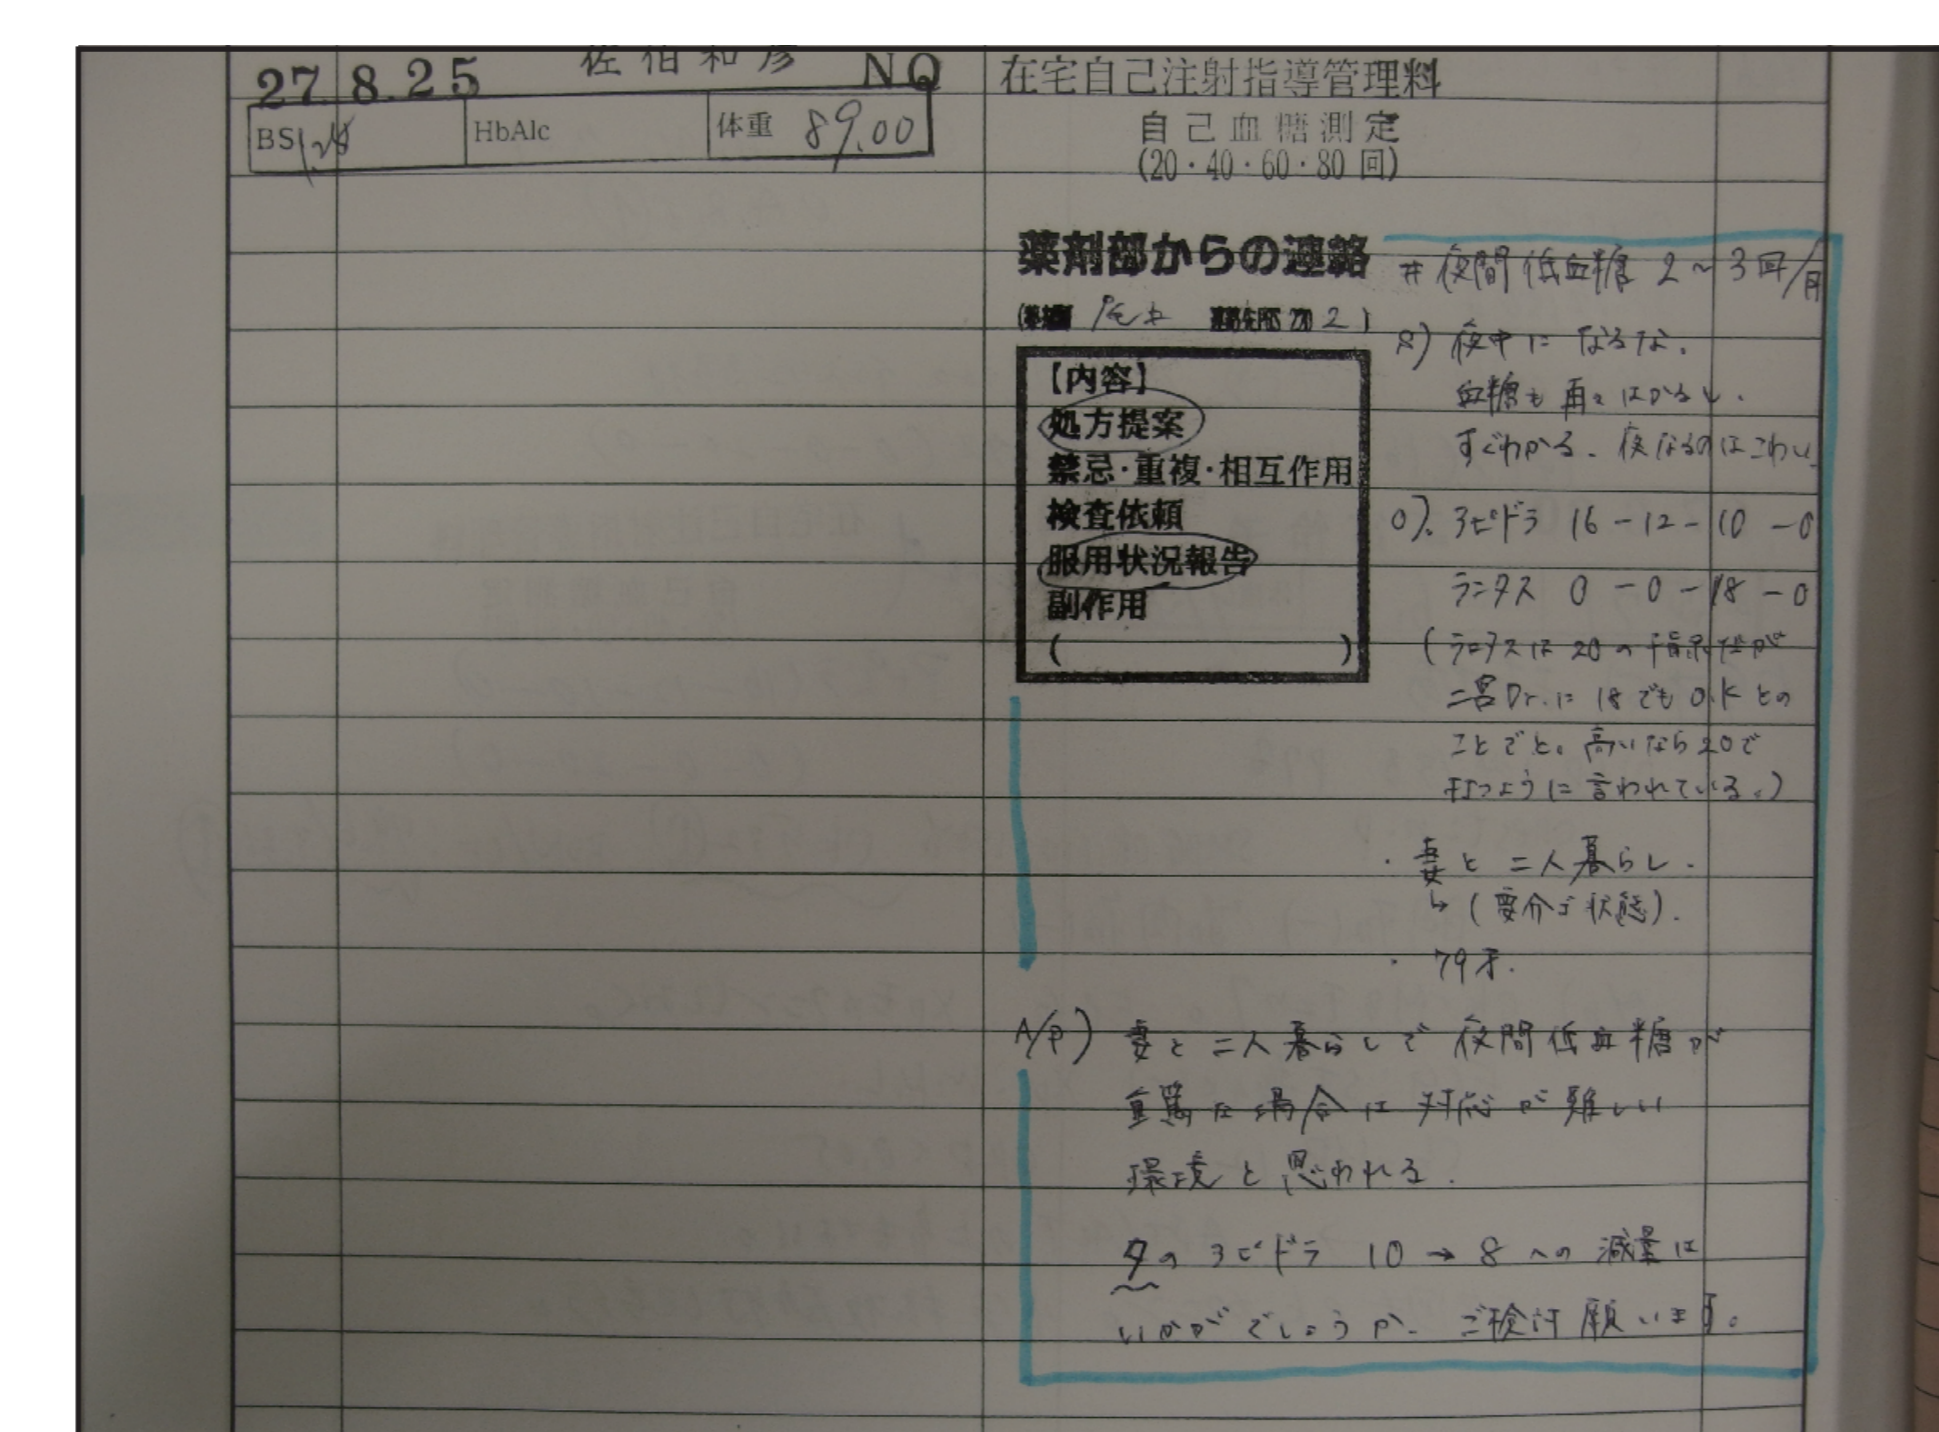 佐伯和彦 NQ
27.8.25
BS 128 HbAlc 体重 89.00
在宅自己注射指導管理料
自己血糖測定
(20・40・60・80回)
薬剤部からの連絡
2)
【内容】
処方提案
禁忌・重複・相互作用
検査依頼
服用状況報告
副作用
( )
# 夜間低血糖 2~3回/月
S) 夜中になるな.
血糖も再々はかるし.
すぐわかる. 夜なるのはこわい
O). アピドラ 16-12-10-0
ランタス 0-0-18-0
(ランタスは20の指示だが
二宮Dr.に18でもO.Kとの
ことでと。高いなら20で
打つように言われている。)
・妻と二人暮らし.
↳(要介ゴ状態).
・79才.
A/P) 妻と二人暮らしで夜間低血糖が
重篤な場合は対応が難しい
環境と思われる.
夕のアピドラ 10→8への減量は
いかがでしょうか. ご検討願います。